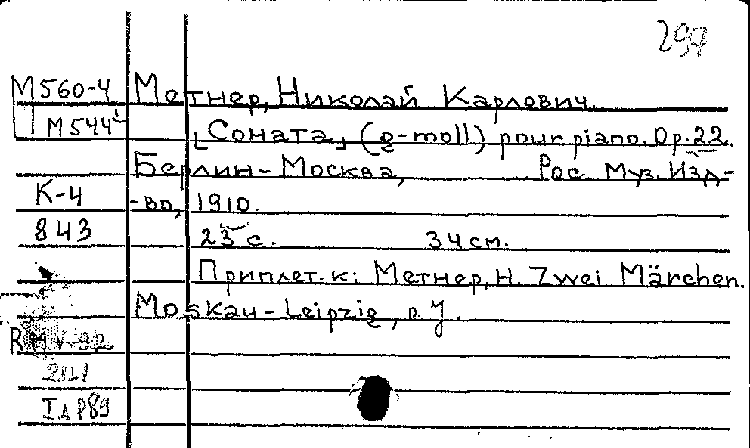 297
М560-4 Метнер, Николай Карлович.
М544 [Соната] (g-moll) pour piano. Op. 22.
Берлин-Москва, Рос. Муз. Изд-
К-4 -во, 1910.
843 23 с. 34 см.
Приплет. к: Метнер, Н. Zwei Märchen.
Moskau-Leipzig, s. j.